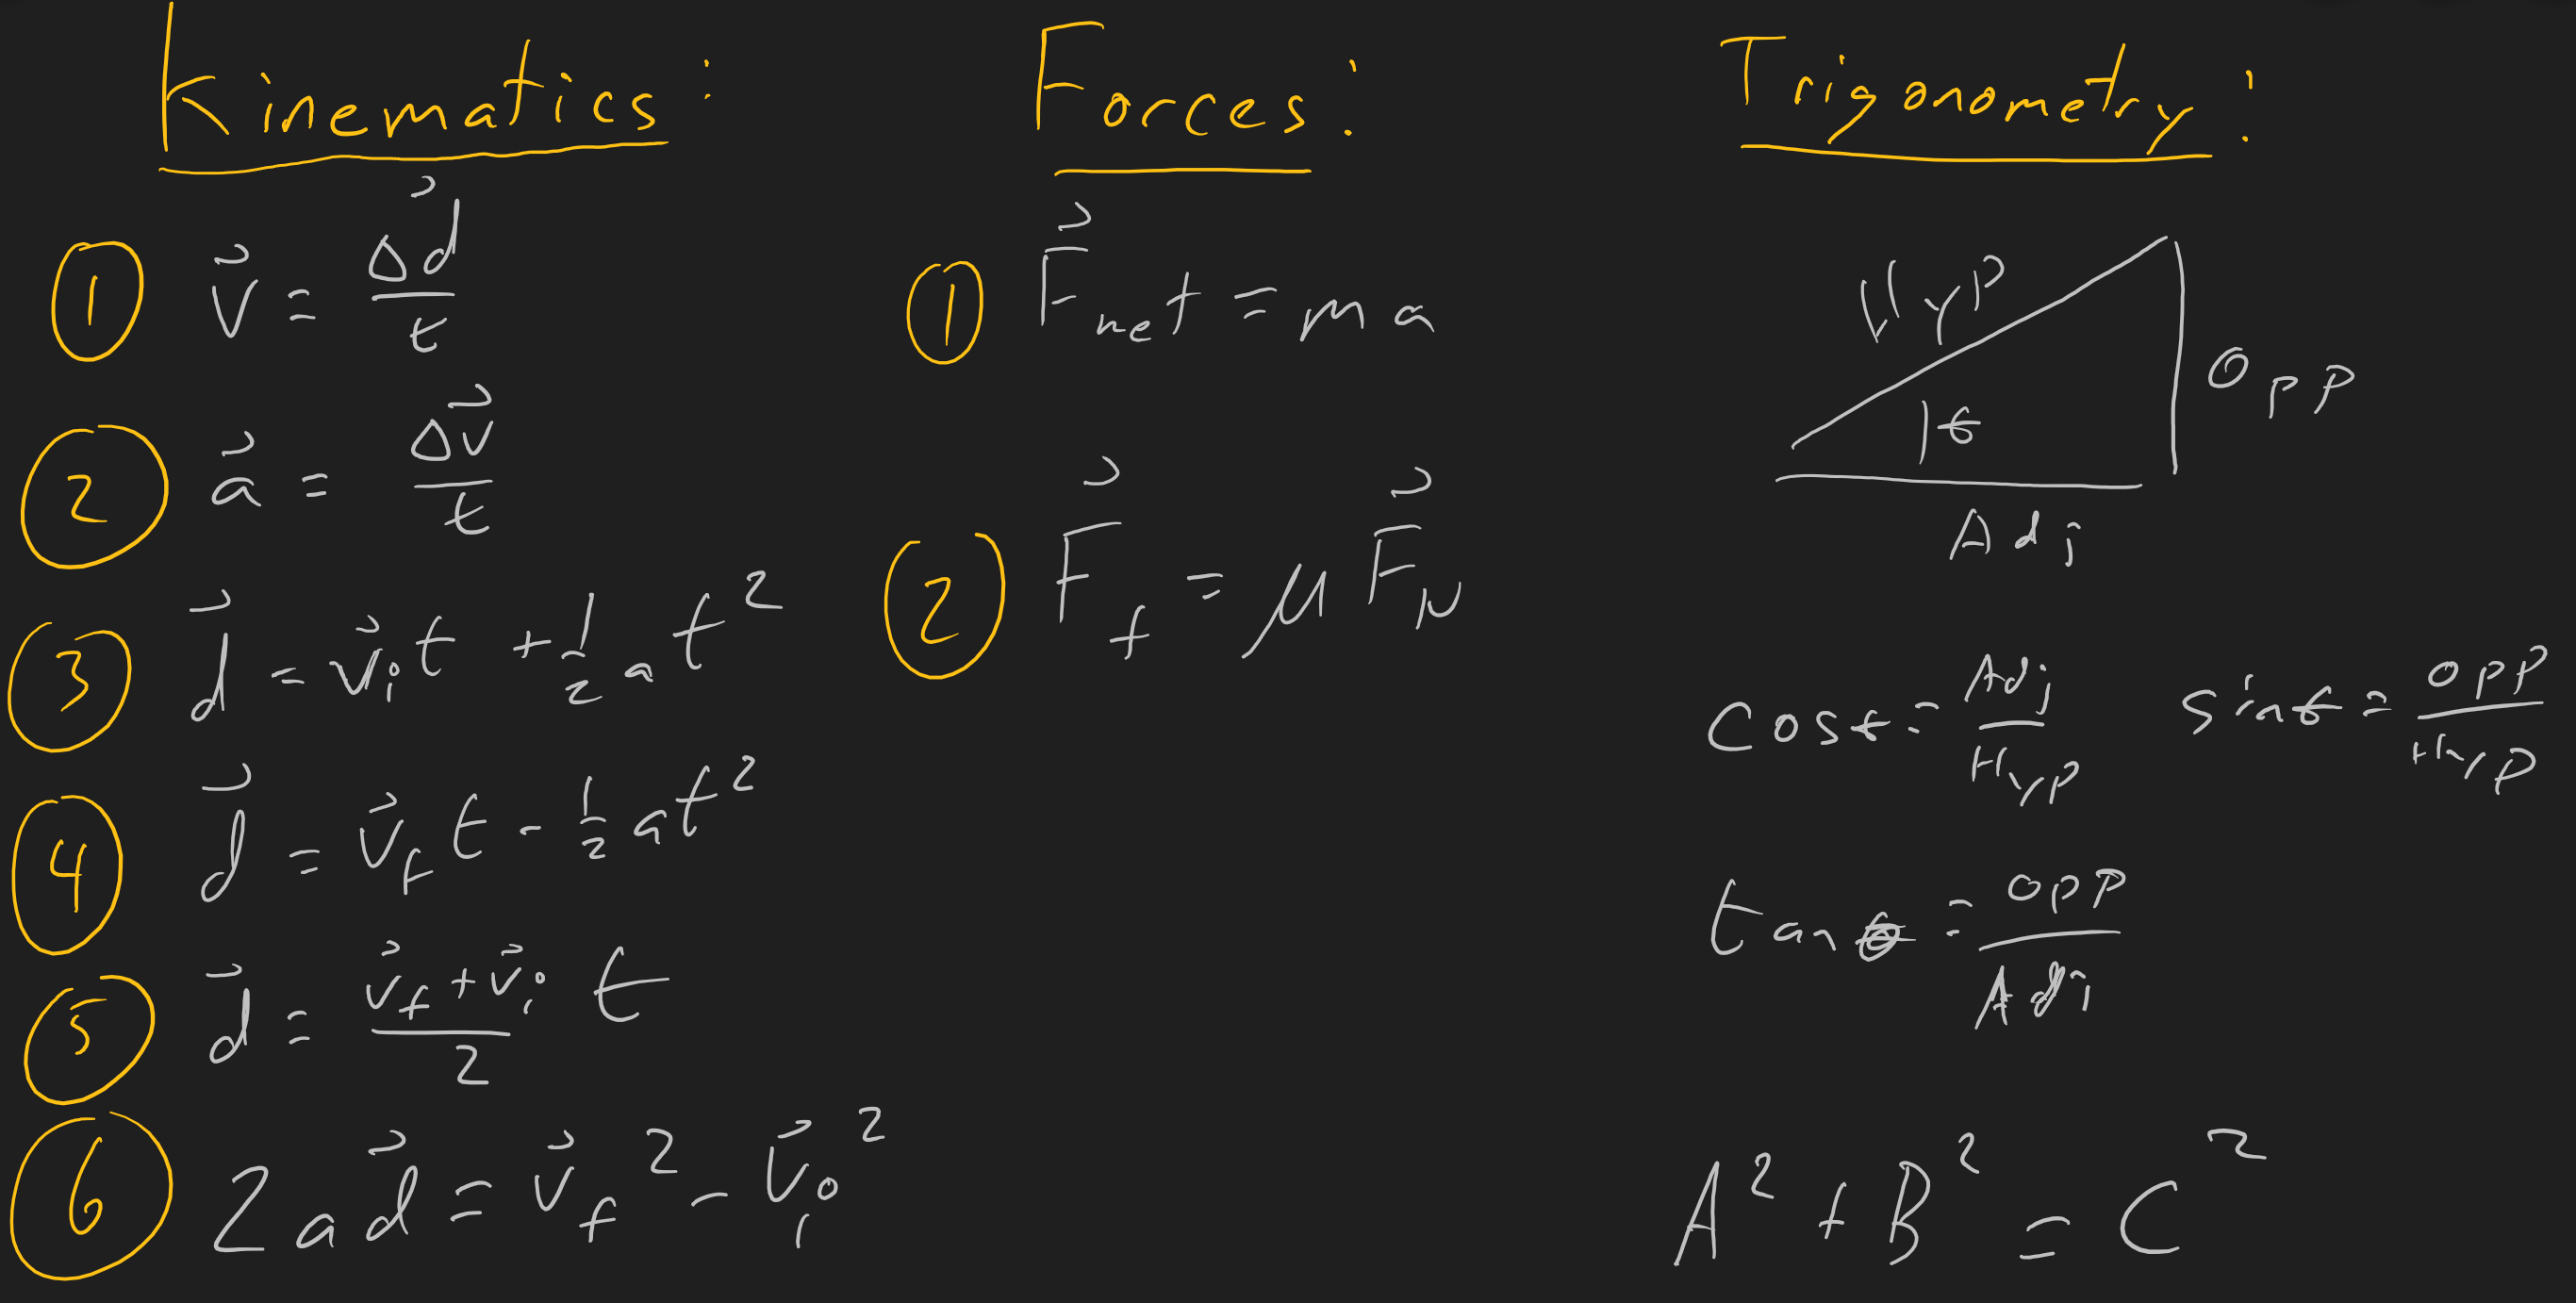 Kinematics:
① v⃗ = Δd⃗ / t
② a⃗ = Δv⃗ / t
③ d⃗ = v⃗ᵢt + 1/2 at²
④ d⃗ = v⃗_f t - 1/2 at²
⑤ d⃗ = (v⃗_f + v⃗ᵢ)/2 t
⑥ 2ad⃗ = v⃗_f² - v⃗ᵢ²
Forces:
① F⃗_net = ma
② F⃗_f = μF⃗_N
Trigonometry:
Hyp
Opp
θ
Adj
cosθ = Adj/Hyp sinθ = opp/Hyp
tanθ = opp/Adj
A² + B² = C²